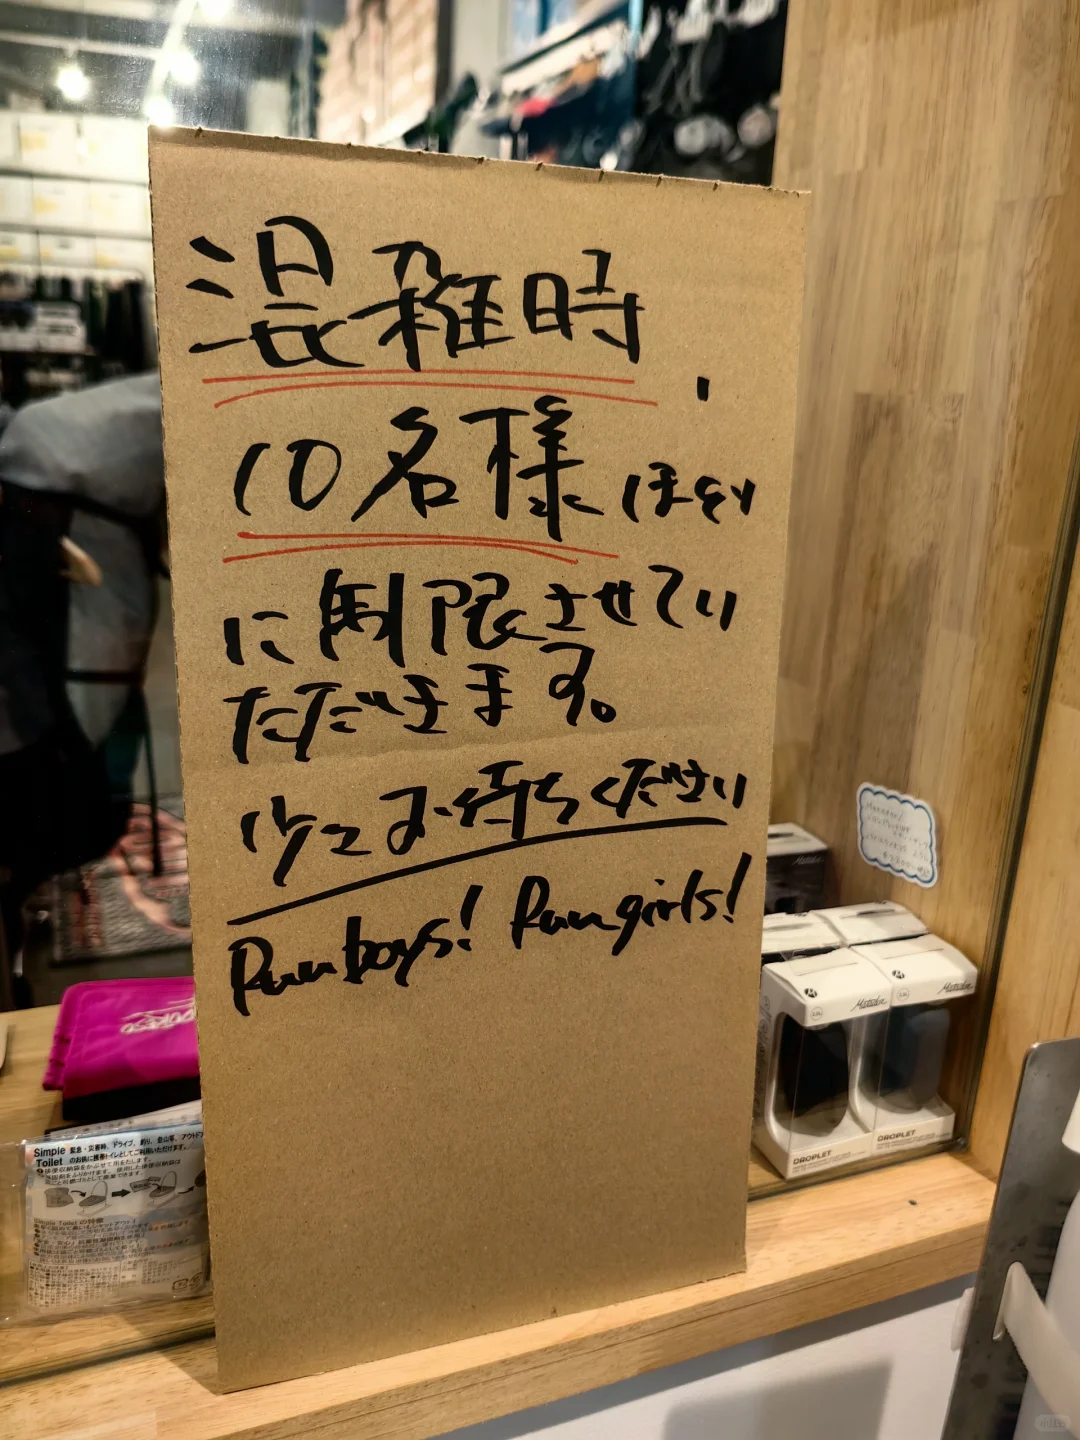 混雑時、
10名様ほど
に制限させてい
ただきます。
少しお待ちください
Run boys! Run girls!
Simple
Toilet
Matador
Matador
DROPLET
DROPLET